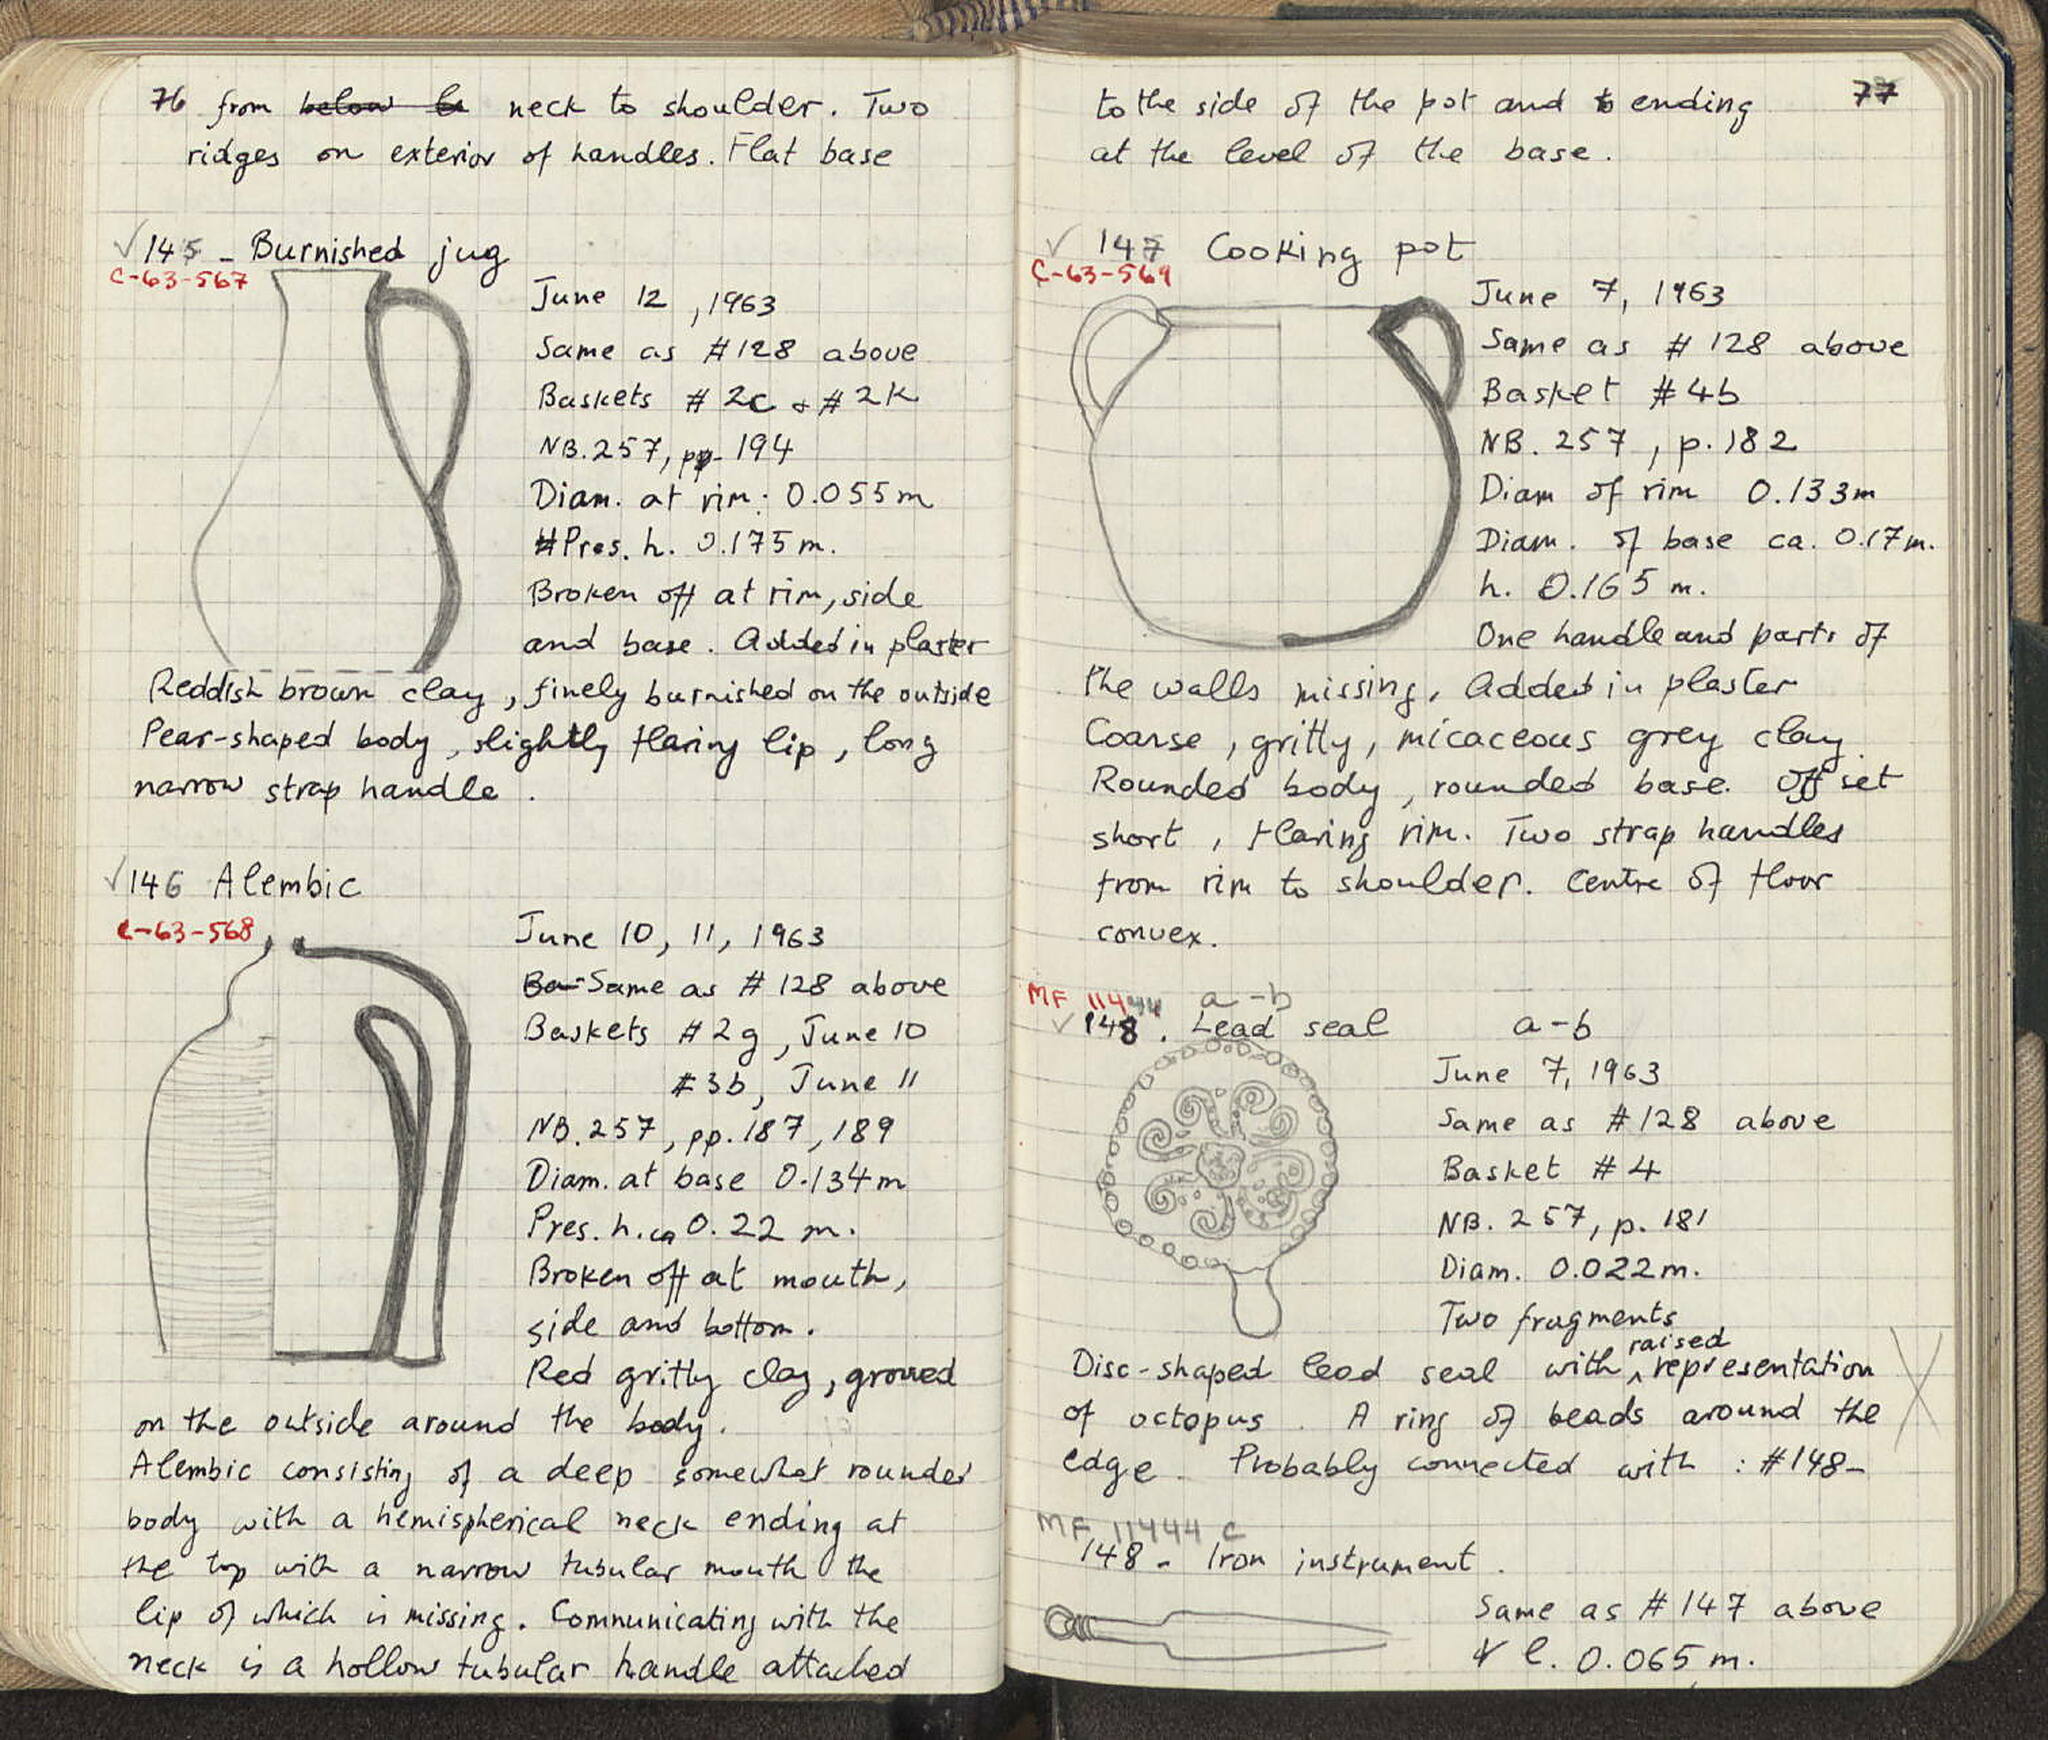 76 from below be neck to shoulder. Two
ridges on exterior of handles. Flat base
✓145 - Burnished jug
C-63-567
June 12, 1963
Same as #128 above
Baskets #2c & #2k
NB. 257, pp. 194
Diam. at rim: 0.055m
Pres. h. 0.175m.
Broken off at rim, side
and base. Added in plaster
Reddish brown clay, finely burnished on the outside
Pear-shaped body, slightly flaring lip, long
narrow strap handle.
✓146 Alembic
C-63-568
June 10, 11, 1963
Ba- Same as #128 above
Baskets #2g, June 10
#3b, June 11
NB. 257, pp. 187, 189
Diam. at base 0.134m
Pres. h. ca 0.22 m.
Broken off at mouth,
side and bottom.
Red gritty clay, groved
on the outside around the body.
Alembic consisting of a deep somewhat rounded
body with a hemispherical neck ending at
the top with a narrow tubular mouth the
lip of which is missing. Communicating with the
neck is a hollow tubular handle attached
77
to the side of the pot and ending
at the level of the base.
✓147 Cooking pot
C-63-569
June 7, 1963
Same as #128 above
Basket #4b
NB. 257, p. 182
Diam of rim 0.133m
Diam. of base ca. 0.17m.
h. 0.165 m.
One handle and parts of
the walls missing. Added in plaster
Coarse, gritty, micaceous grey clay.
Rounded body, rounded base. Off set
short, flaring rim. Two strap handles
from rim to shoulder. Centre of floor
convex.
MF 11444 a-b
✓148. Lead seal a-b
June 7, 1963
Same as #128 above
Basket #4
NB. 257, p. 181
Diam. 0.022m.
Two fragments
Disc-shaped lead seal with ^raised representation
of octopus. A ring of beads around the
edge. Probably connected with: #148-
MF 11444 c
148 - Iron instrument.
Same as #147 above
l. 0.065 m.